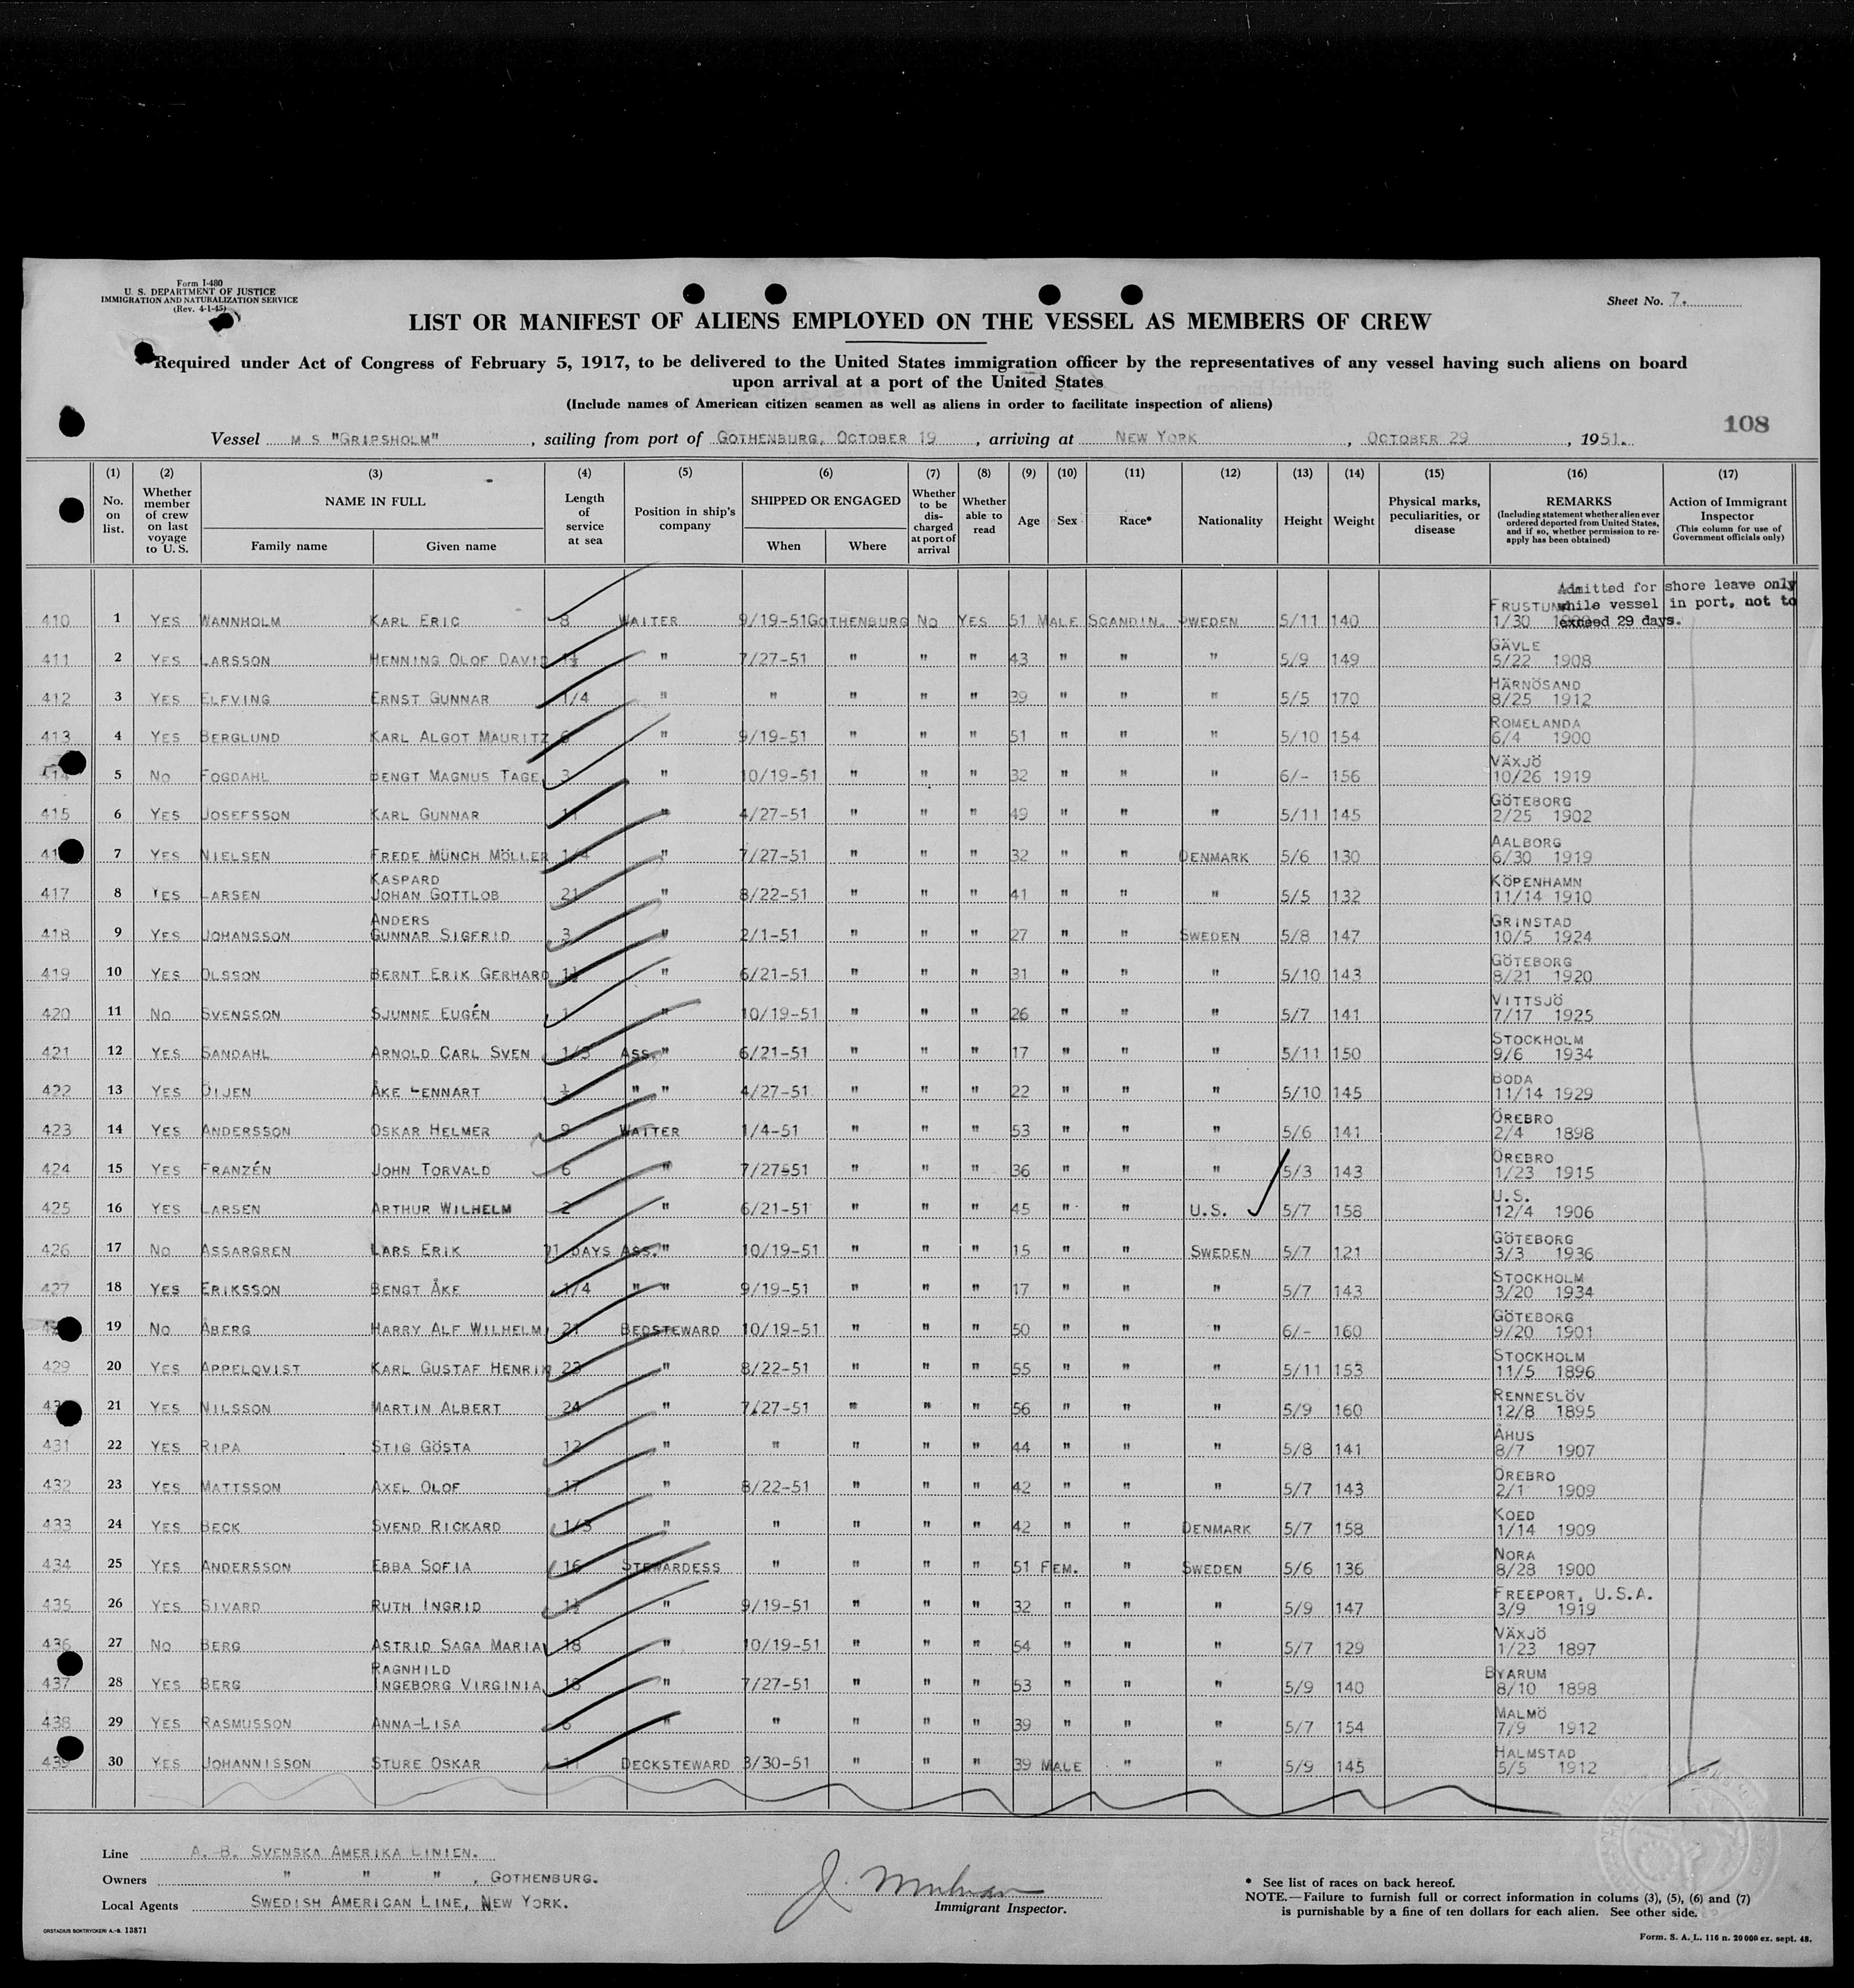 Form I-480
U. S. DEPARTMENT OF JUSTICE
IMMIGRATION AND NATURALIZATION SERVICE
(Rev. 4-1-45)
Sheet No. 7.
LIST OR MANIFEST OF ALIENS EMPLOYED ON THE VESSEL AS MEMBERS OF CREW
Required under Act of Congress of February 5, 1917, to be delivered to the United States immigration officer by the representatives of any vessel having such aliens on board
upon arrival at a port of the United States
(Include names of American citizen seamen as well as aliens in order to facilitate inspection of aliens)
108
Vessel M S "GRIPSHOLM", sailing from port of GOTHENBURG, OCTOBER 19, arriving at NEW YORK, OCTOBER 29, 1951.
(1) (2) (3) (4) (5) (6) (7) (8) (9) (10) (11) (12) (13) (14) (15) (16) (17)
No. on list.
Whether member of crew on last voyage to U. S.
NAME IN FULL
Family name
Given name
Length of service at sea
Position in ship's company
SHIPPED OR ENGAGED
When
Where
Whether to be discharged at port of arrival
Whether able to read
Age
Sex
Race*
Nationality
Height
Weight
Physical marks, peculiarities, or disease
REMARKS
(Including statement whether alien ever ordered deported from United States, and if so, whether permission to re-apply has been obtained)
Action of Immigrant Inspector
(This column for use of Government officials only)
Admitted for shore leave only
while vessel in port, not to
exceed 29 days.
410 1 YES WANNHOLM KARL ERIC 8 WAITER 9/19-51 GOTHENBURG NO YES 51 MALE SCANDIN. SWEDEN 5/11 140 1/30
411 2 YES LARSSON HENNING OLOF DAVID 1½ " 7/27-51 " " " 43 " " " 5/9 149 GÄVLE 5/22 1908
412 3 YES ELFVING ERNST GUNNAR 1/4 " " " " " 39 " " " 5/5 170 HÄRNÖSAND 8/25 1912
413 4 YES BERGLUND KARL ALGOT MAURITZ 6 " 9/19-51 " " " 51 " " " 5/10 154 ROMELANDA 6/4 1900
414 5 NO FOGDAHL BENGT MAGNUS TAGE 3 " 10/19-51 " " " 32 " " " 6/- 156 VÄXJÖ 10/26 1919
415 6 YES JOSEFSSON KARL GUNNAR " 4/27-51 " " " 49 " " " 5/11 145 GÖTEBORG 2/25 1902
7 YES NIELSEN FREDE MÜNCH MÖLLER 1/4 " 7/27-51 " " " 32 " " DENMARK 5/6 130 AALBORG 6/30 1919
417 8 YES LARSEN KASPARD JOHAN GOTTLOB 21 " 8/22-51 " " " 41 " " " 5/5 132 KÖPENHAMN 11/14 1910
418 9 YES JOHANSSON ANDERS GUNNAR SIGFRID 3 " 2/1-51 " " " 27 " " SWEDEN 5/8 147 GRINSTAD 10/5 1924
419 10 YES OLSSON BERNT ERIK GERHARD 1½ " 6/21-51 " " " 31 " " " 5/10 143 GÖTEBORG 8/21 1920
420 11 NO SVENSSON SJUNNE EUGÉN 1 " 10/19-51 " " " 26 " " " 5/7 141 VITTSJÖ 7/17 1925
421 12 YES SANDAHL ARNOLD CARL SVEN 1/3 ASS. " 6/21-51 " " " 17 " " " 5/11 150 STOCKHOLM 9/6 1934
422 13 YES ÖIJEN ÅKE LENNART ½ " " 4/27-51 " " " 22 " " " 5/10 145 BODA 11/14 1929
423 14 YES ANDERSSON OSKAR HELMER 9 WAITER 1/4-51 " " " 53 " " " 5/6 141 ÖREBRO 2/4 1898
424 15 YES FRANZÉN JOHN TORVALD 6 " 7/27-51 " " " 36 " " " 5/3 143 ÖREBRO 1/23 1915
425 16 YES LARSEN ARTHUR WILHELM 2 " 6/21-51 " " " 45 " " U.S. 5/7 158 U.S. 12/4 1906
426 17 NO ASSARGREN LARS ERIK DAYS ASS. " 10/19-51 " " " 15 " " SWEDEN 5/7 121 GÖTEBORG 3/3 1936
427 18 YES ERIKSSON BENGT ÅKE 1/4 " " 9/19-51 " " " 17 " " " 5/7 143 STOCKHOLM 3/20 1934
19 NO ÅBERG HARRY ALF WILHELM 21 BEDSTEWARD 10/19-51 " " " 50 " " " 6/- 160 GÖTEBORG 9/20 1901
429 20 YES APPELQVIST KARL GUSTAF HENRIK 23 " 8/22-51 " " " 55 " " " 5/11 153 STOCKHOLM 11/5 1896
21 YES NILSSON MARTIN ALBERT 24 " 7/27-51 " " " 56 " " " 5/9 160 RENNESLÖV 12/8 1895
431 22 YES RIPA STIG GÖSTA 12 " " " " " 44 " " " 5/8 141 ÅHUS 8/7 1907
432 23 YES MATTSSON AXEL OLOF 17 " 8/22-51 " " " 42 " " " 5/7 143 ÖREBRO 2/1 1909
433 24 YES BECK SVEND RICKARD 1/3 " " " " " 42 " " DENMARK 5/7 158 KOED 1/14 1909
434 25 YES ANDERSSON EBBA SOFIA 16 STEWARDESS " " " " 51 FEM. " SWEDEN 5/6 136 NORA 8/28 1900
435 26 YES SIVARD RUTH INGRID 1½ " 9/19-51 " " " 32 " " " 5/9 147 FREEPORT, U.S.A. 3/9 1919
436 27 NO BERG ASTRID SAGA MARIA 18 " 10/19-51 " " " 54 " " " 5/7 129 VÄXJÖ 1/23 1897
437 28 YES BERG RAGNHILD INGEBORG VIRGINIA 18 " 7/27-51 " " " 53 " " " 5/9 140 BYARUM 8/10 1898
438 29 YES RASMUSSON ANNA-LISA 6 " " " " " 39 " " " 5/7 154 MALMÖ 7/9 1912
439 30 YES JOHANNISSON STURE OSKAR 11 DECKSTEWARD 3/30-51 " " " 39 MALE " " 5/9 145 HALMSTAD 5/5 1912
Line A. B. SVENSKA AMERIKA LINIEN.
Owners " " " , GOTHENBURG.
Local Agents SWEDISH AMERICAN LINE, NEW YORK.
Immigrant Inspector.
* See list of races on back hereof.
NOTE.—Failure to furnish full or correct information in colums (3), (5), (6) and (7)
is punishable by a fine of ten dollars for each alien. See other side.
ORSTADIUS BOKTRYCKERI A.-B. 13871
Form. S. A. L. 116 n. 20000 ex. sept. 48.